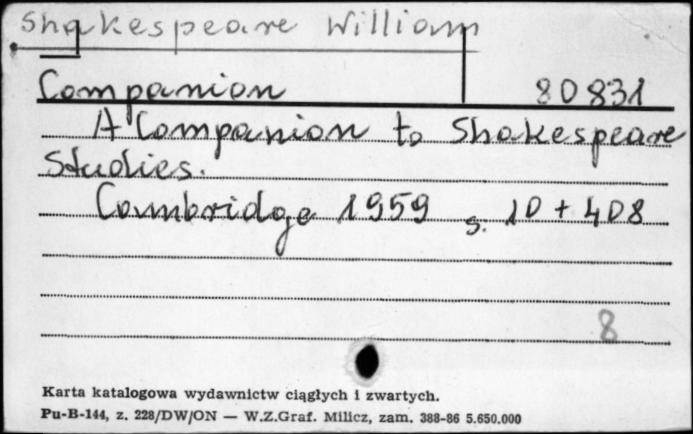 Shakespeare William
Companion 80831
A Companion to Shakespeare
Studies.
Cambridge 1959 s. 10 + 408
8
Karta katalogowa wydawnictw ciągłych i zwartych.
Pu-B-144, z. 228/DW/ON — W.Z.Graf. Milicz, zam. 388-86 5.650.000